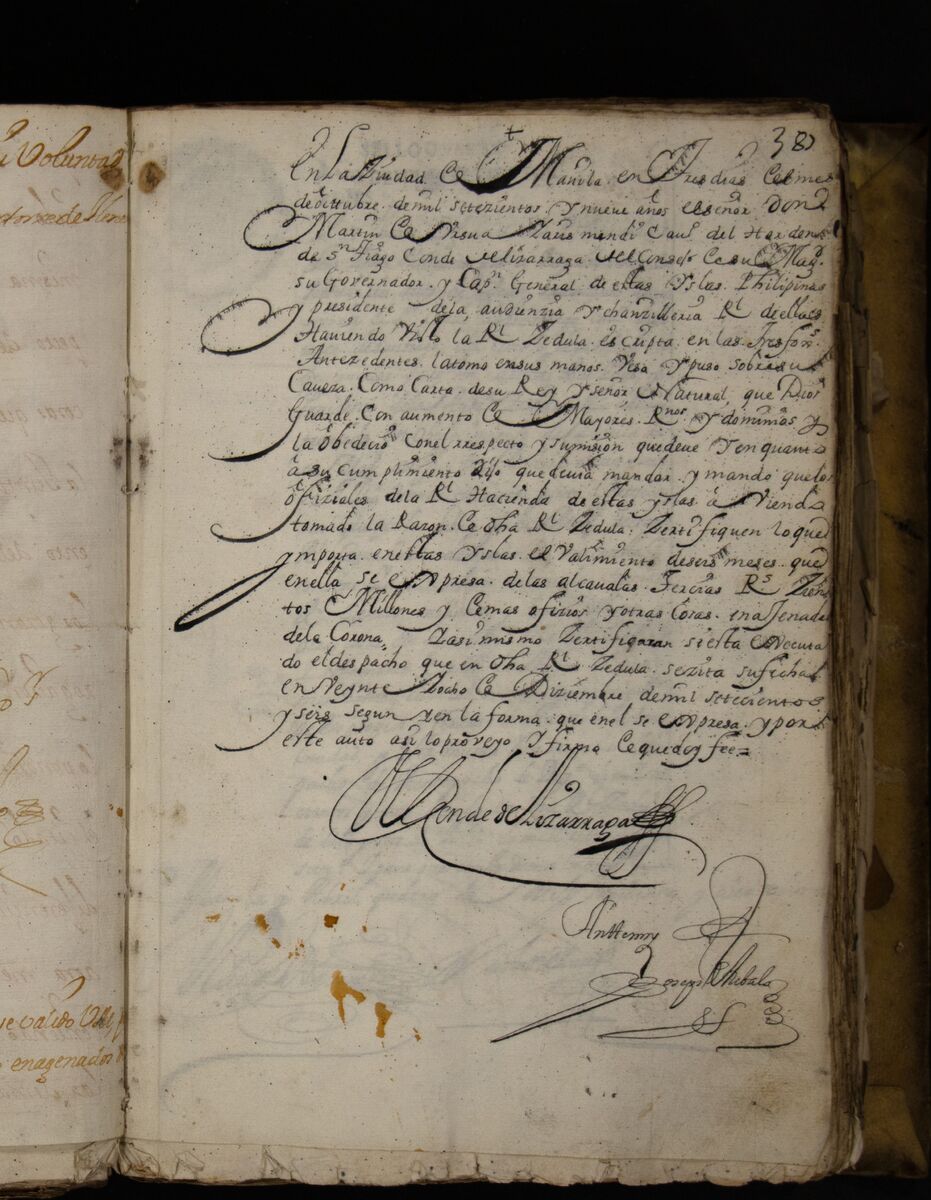 u Voluntad
+
38
En La Ziudad de Manila en Tres dias del mes
de octubre de mil setezientos y nueve años el señor Don
Martin de Ursua Arismendi Cavº del Horden
de Sn Tiago Conde de lizarraga del Consejo de su Magd
su Governador y Capn General de estas Yslas Philipinas
y presidente dela audienzia y chanzilleria Rl de ellas
Haviendo Visto la Rl Zedula escripta en las Tres fojs
Antezedentes la tomo en sus manos Veso y puso sobre su
Caveza Como Carta de su Rey y señor Natural que Dios
Guarde con aumento de Mayores Rnos y dominios y
la obedecio con el rrespecto y sumision que deve Y en quanto
â su cumplimiento dijo que devia mandar y mando que los
ofiziales de la Rl Hacienda de estas yslas aviendo
tomado la Razon de dha Rl Zedula Zertifiquen lo que
ymporta en estas Yslas el Valimiento de seis meses que
en ella se expresa de las alcavalas Tercias Rs Zien
tos Millones y demas ofizios y otras Cosas enajenadas
de la Corona Y asi mismo Zertificaran si esta executa
do el despacho que en dha Rl Zedula se zita su fecha
en Veynte Y ocho de Diziembre de mil setecientos
y seis segun y en la forma que en el se expresa y por
este auto asi lo proveyo Y firma de que doy fee=
El Conde de Lizarraga
Antte my
Joseph
ue valido Vale
enagenados